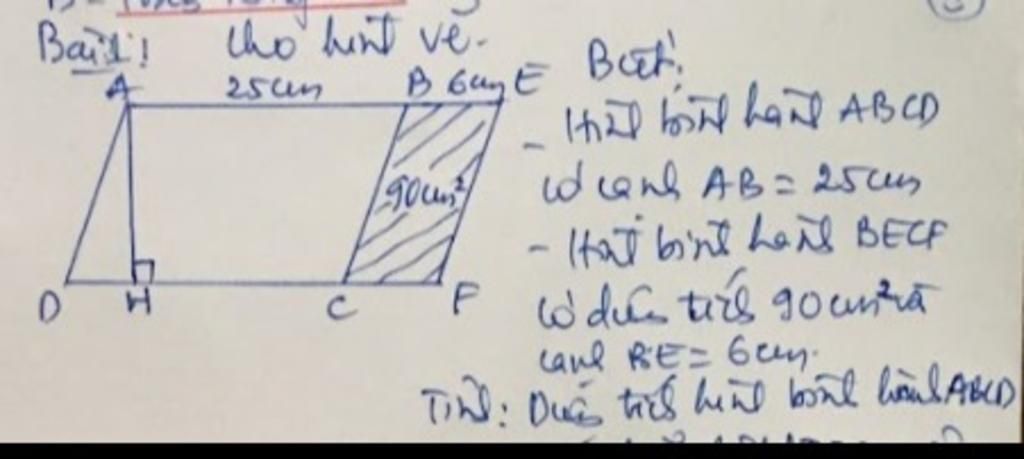 Bài 1: Cho hình vẽ.
A 25cm B 6cm E
90cm²
D H C F
Biết:
- Hình bình hành ABCD
có cạnh AB = 25cm
- Hình bình hành BECF
có diện tích 90cm² và
cạnh BE = 6cm.
Tính: Diện tích hình bình hành ABCD